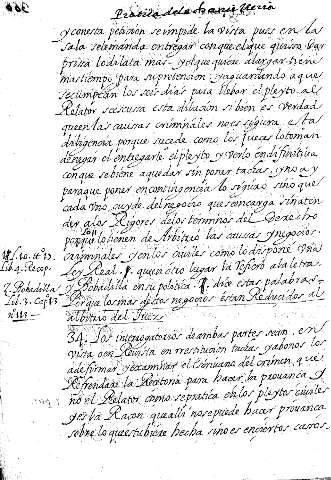 Practica de la Chancilleria
y con esta peticion se impide la vista pues en la
sala se le manda entregar con que el que quisiere dar
prisa lo dalata mas, y el que quiere alargar tiene
mas tiempo para su pretencion, y aguardando a que
se cumplan los seis dias para llebar el pleyto al
Relator se escusa esta dilacion si bien es verdad
que en las causas criminales no es segura esta
diligencia porque sucede como los jueces lo toman
denegar el entregarle el pleyto, y verlo en difinitiva
con que se biene a quedar sin poner tachas, y no ay
para que poner en contingencia lo seguro sino que
cada uno cuyde del negocio que se encarga sin aten
der a los Rigores de los terminos del Derecho
porque oy los tienen de Arbitrio las causas y negocios
criminales, y en los quales como lo dispone una
Ley Real y que en otro lugar la Refiero a la letra,
y Bobadilla en su politica dice estas palabras
Porque los mas destos negocios estan Reducidos al
albitrio del Juez
M. l. 10. tt. 17.
Lib. 4. Recop.
Bobadilla
Lib. 3. Cap. 15
n. 113
34. Los interrogatorios de ambas partes sean en
vista o en Revista en restitucion tachas y abonos los
a de firmar y examinar el Escrivano del crimen que
Refrendare la Receptoria para hacer la provança y
no el Relator como se pratica en los pleytos civiles
y es la Raçon que alli no se puede hacer provança
sobre lo que estubiere hecha sino es en ciertos casos